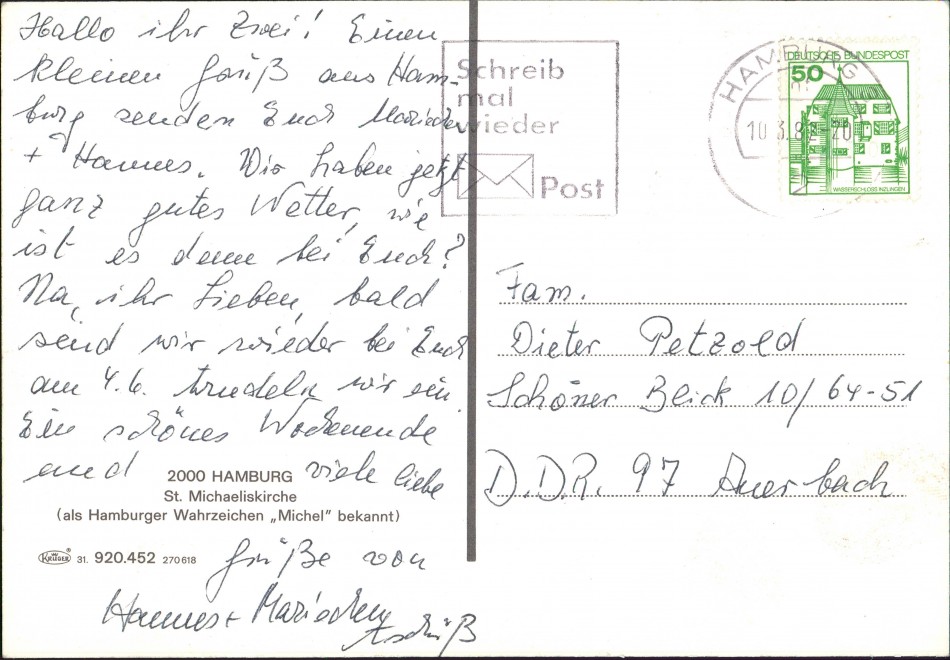 Hallo ihr Zwei! Einen
kleinen Gruß aus Ham-
burg senden Euch Mariechen
+ Hannes. Wir haben jetzt
ganz gutes Wetter, wie
ist es denn bei Euch?
Na, ihr Lieben, bald
seid wir wieder bei Euch
am 4.6. trudeln wir ein.
Ein schönes Wochenende
und viele liebe
Grüße von
Hannes + Mariechen
tschüß
2000 HAMBURG
St. Michaeliskirche
(als Hamburger Wahrzeichen „Michel” bekannt)
KRÜGER 31. 920.452 270618
Schreib
mal
wieder
Post
HAMBURG
10.3.82-20
DEUTSCHE BUNDESPOST
50
WASSERSCHLOSS INZLINGEN
Fam.
Dieter Petzold
Schöner Blick 10/64-51
D.D.R. 97 Auerbach